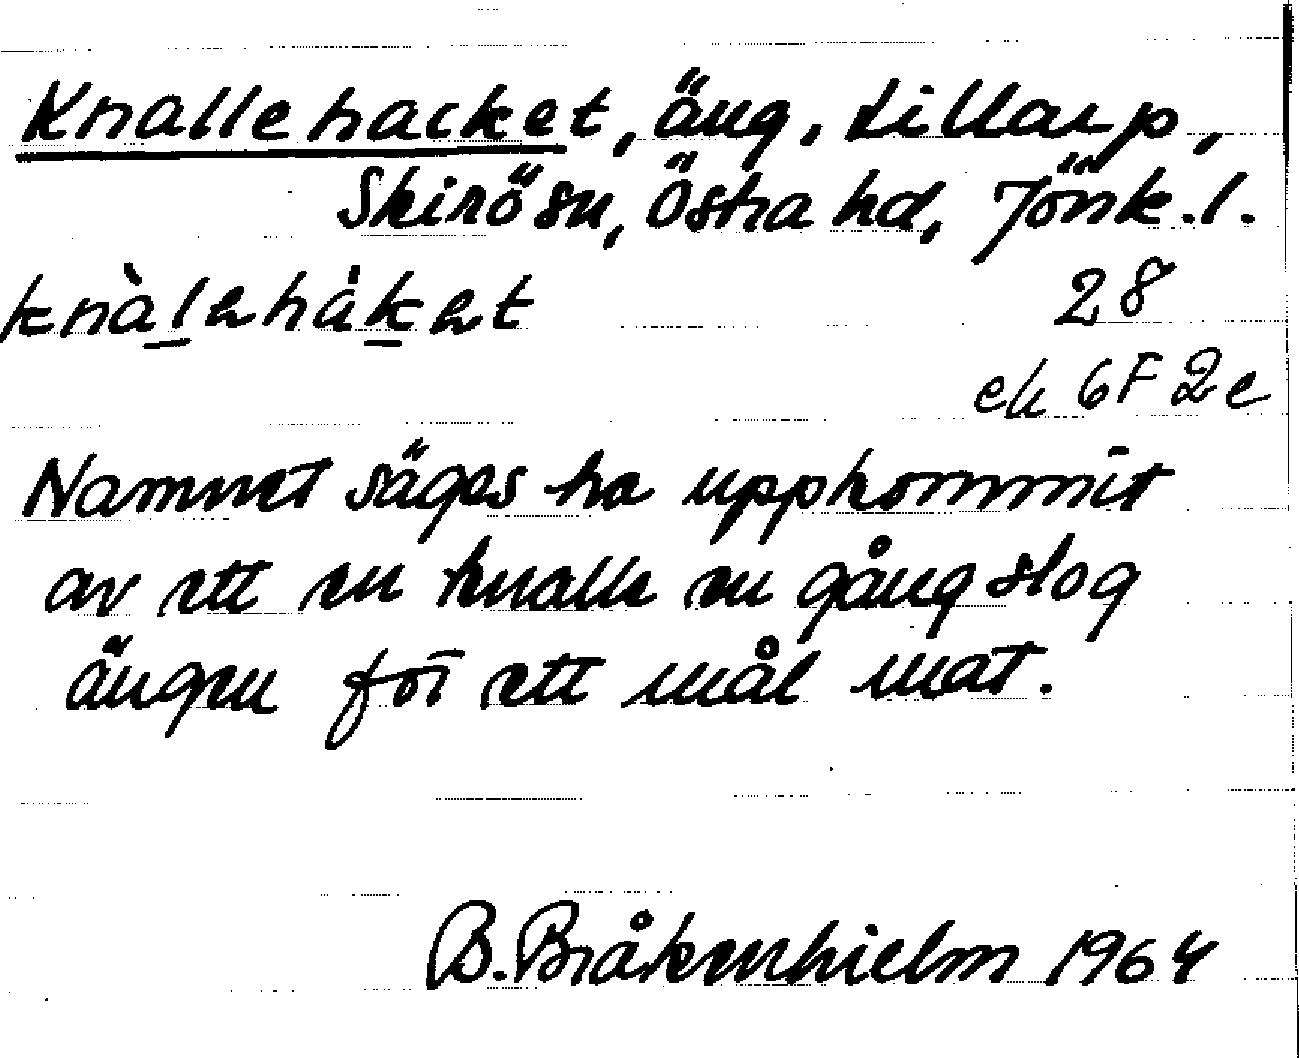 Knallehacket, äng, Lillarp,
Skirö sn, Östra hd, Jönk. l.
knàlehàket
28
ek 6F 2e
Namnet säges ha uppkommit
av ett en knalle en gång slog
ängen för ett mål mat.
B. Bråkenhielm 1964